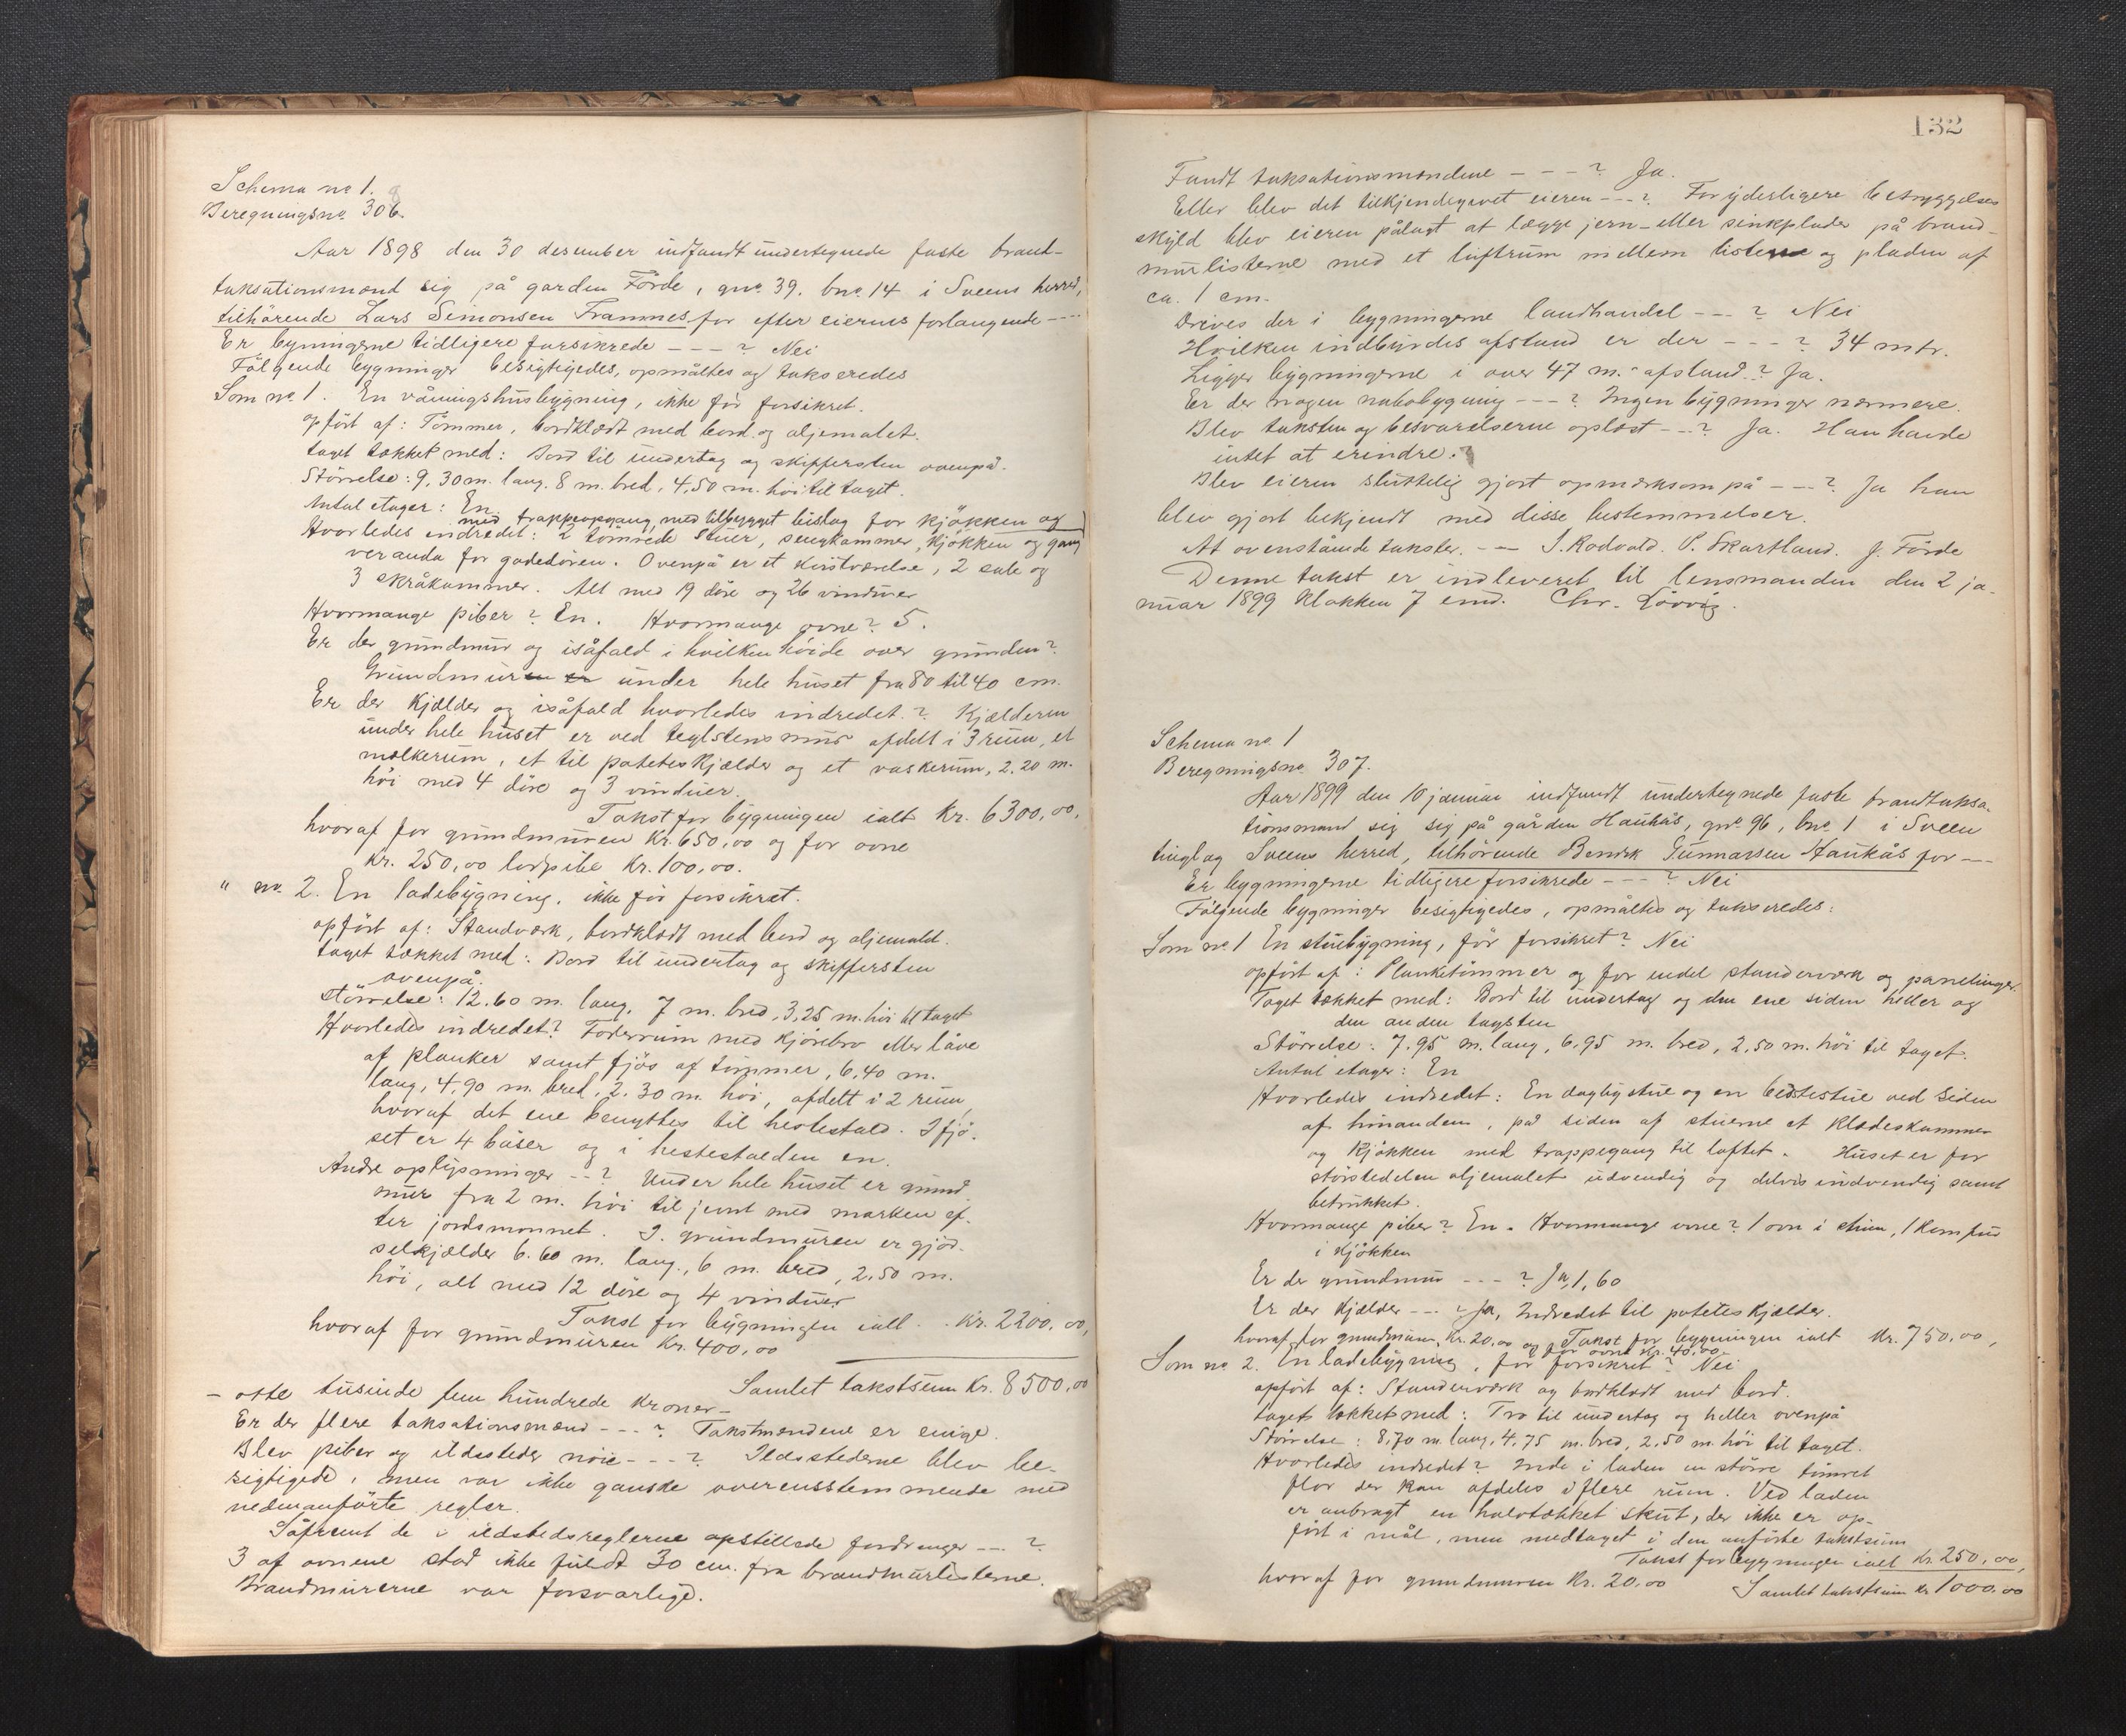 Schema no 1.
Beregningsno. 306.
Aar 1898 den 30 desember indfandt undertegnede faste brand-
taksationsmænd sig på garden Förde, gno. 39. bno. 14 i Sveens herred,
tilhörende Lars Simonsen Framnes for efter eierens forlangende ---
Er bygningerne tidligere forsikrede - - - ? Nei
Fölgende bygninger besigtigedes, opmåltes og takseredes
Som no. 1. En våningshusbygning, ikke för forsikret.
opfört af: Tömmer, bordklædt med bord og oljemalet.
taget tækket med: Bord til undertag og skiffersten ovenpå.
Störrelse: 9,30 m. lang. 8 m. bred, 4,50 m. höi til taget.
Antal etager: En.
med trappeopgang, med tilbygget bislag for kjökken og
Hvorledes indredet: 2 tömrede stuer, sengkammer, kjökken og gang
veranda for gadedören. Ovenpå er et kvistværelse, 2 sale og
3 skråkammer. Alt med 19 döre og 26 vinduer
Hvormange piber? En. Hvormange ovne? 5.
Er der grundmur og isåfald i hvilken höide over grunden?
Grundmuren er under hele huset fra 80 til 40 cm.
Er der kjælder og isåfald hvorledes indredet.? Kjælderen
under hele huset er ved teglstensmur afdelt i 3 rum, et
mælkerum, et til poteteskjælder og et vaskerum, 2.20 m.
höi med 4 döre og 3 vinduer.
Takst for bygningen ialt Kr. 6300,00,
hvoraf for grundmuren Kr. 650,00 og for ovne
Kr. 250,00 Kr. 100,00.
" no. 2. En ladebygning, ikke för forsikret.
opfört af: Standværk, bordklædt med bord og oljemalet.
taget tækket med: Bord til undertag og skiffersten
ovenpå.
Störrelse: 12.60 m. lang, 7 m. bred, 3,25 m. höi til taget
Hvorledes indredet? Foderrum med kjörebro eller låve
af planker samt fjös af tömmer, 6,40 m.
lang, 4,90 m. bred, 2.30 m. höi, afdelt i 2 rum,
hvoraf det ene benyttes til hestestald. I fjö-
set er 4 båser og i hestestalden en.
Andre oplysninger - - ? Under hele huset er grund-
mur fra 2 m. höi til jevnt med marken ef-
ter jordsmonnet. I grundmuren er gjöd-
selkjælder 6.60 m. lang, 6 m. bred, 2,50 m.
höi, alt med 12 döre og 4 vinduer
Takst for bygningen ialt . Kr. 2200,00,
hvoraf for grundmuren Kr. 400,00
Samlet takstsum Kr. 8500,00
- otte tusinde fem hundrede kroner -
Er der flere taksationsmænd - - - ? Takstmændene er enige.
Blev piber og ildssteder nöie - - - ? Ildsstederne blev be-
sigtigede, men var ikke ganske overensstemmende med
nedenanförte regler.
Såfremt de i ildstedsreglerne opstillede fordringer --- ?
3 af ovnene stod ikke fuldt 30 cm. fra brandmurlisterne.
Brandmurerne var forsvarlige.
132
Fandt taksationsmændene - - - ? Ja.
Eller blev det tilkjendegivet eieren - - - ? For yderligere betryggelses
skyld blev eieren pålagt at lægge jern- eller sinkplader på brand-
murlisterne med et luftrum mellem listerne og pladen af
ca. 1 cm.
Drives der i bygningerne landhandel - - - ? Nei
Hvilken indbyrdes afstand er der - - - ? 34 mtr.
Ligger bygningerne i over 47 m. afstand..? Ja.
Er der nogen nabobygning - - - ? Ingen bygninger nærmere.
Blev taksten og besvarelserne oplæst - - - ? Ja. Han havde
intet at erindre.
Blev eieren sluttelig gjort opmærksom på - - - ? Ja han
blev gjort bekjendt med disse bestemmelser.
At ovenstående takster. - - S. Rodvald. P. Skartland. J. Förde
Denne takst er indleveret til lensmanden den 2 ja-
nuar 1899 klokken 7 emd. Chr. Lövvig.
Schema no. 1
Beregningsno. 307.
Aar 1899 den 10 januar indfandt undertegnede faste brandtaksa-
tionsmænd sig sig på gården Haukås, gno. 96, bno. 1 i Sveen
tinglag Sveens herred, tilhörende Bendik Gunnarsen Haukås for ---
Er bygningerne tidligere forsikrede - - - ? Nei
Fölgende bygninger besigtigedes, opmåltes og takseredes:
Som no. 1 En stuebygning, för forsikret? Nei
opfört af: Planketömmer og for endel standerværk og panelinger.
Taget tækket med: Bord til undertag og den ene siden heller og
den anden tagsten
Störrelse: 7,95 m. lang, 6,95 m. bred, 2,50 m. höi til taget.
Antal etager: En
Hvorledes indredet: En daglystue og en bedstestue ved siden
af hinanden, på siden af stuerne et klædeskammer
og kjökken med trappegang til loftet. Huset er for
störstedelen oljemalet udvendig og delvis indvendig samt
betrukket.
Hvormange piber? En. Hvormange ovne? 1 ovn i stuen, 1 komfur
i kjökken
Er der grundmur - - - ? Ja, 1,60
Er der kjælder - - - ? Ja, Indredet til poteteskjælder.
Takst for bygningen ialt Kr. 750,00,
hvoraf for grundmuren, Kr. 20,00 og for ovne Kr. 40,00
Som no 2. En ladebygning, för forsikret? Nei
opfört af: Standerværk og bordklædt med bord.
taget tækket med: Tro til undertag og heller ovenpå
Störrelse: 8,70 m. lang, 4,75 m. bred, 2,50 m. höi til taget.
Hvorledes indredet? Inde i laden en större tömret
flor der kan afdeles i flere rum. Ved laden
er anbragt en halvtækket skut, der ikke er op-
fört i mål, men medtaget i den anförte takstsum
Takst for bygningen ialt Kr. 250,00,
hvoraf for grundmuren Kr. 20.00
Samlet takstsum Kr 1000,00